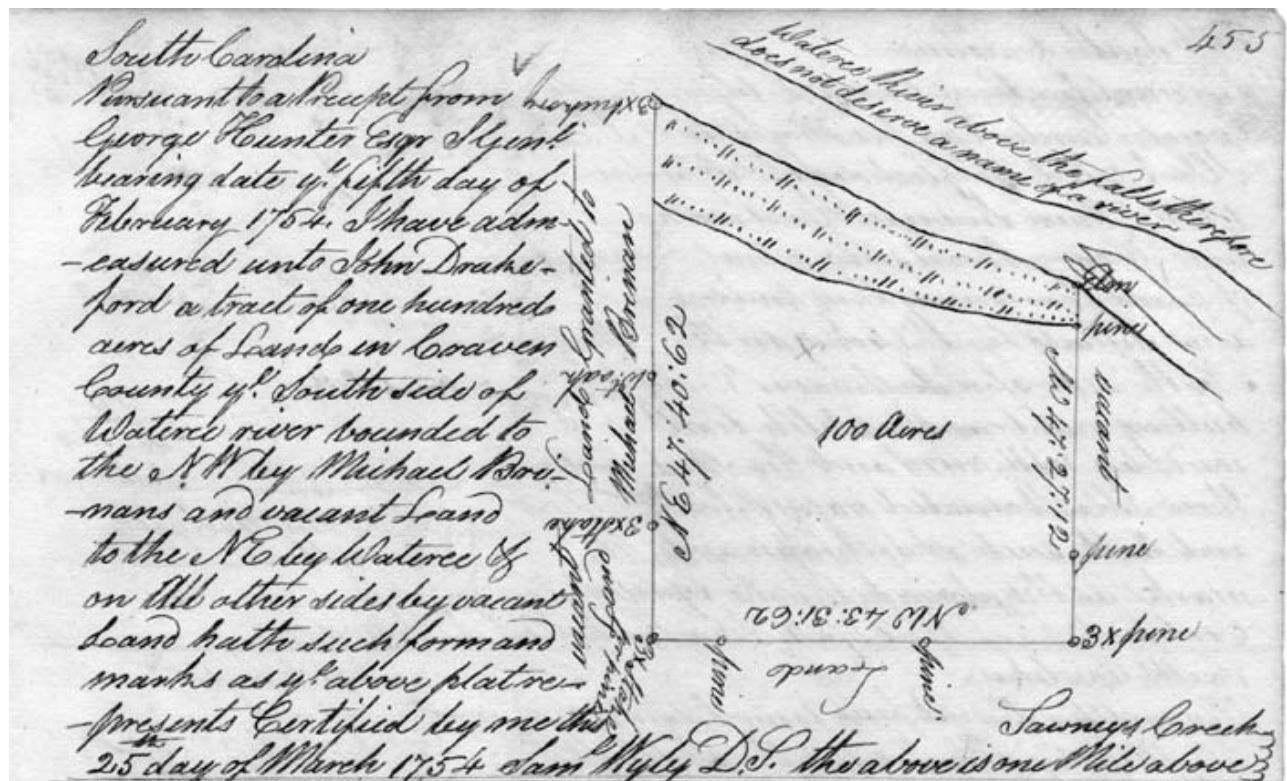 455
South Carolina
Pursuant to a Precept from
George Hunter Esqr S Genl.
bearing date ye. fifth day of
February 1754. I have adm-
-easured unto John Drake-
ford a tract of one hundred
acres of Land in Craven
County ye. South side of
Wateree river bounded to
the N.W by Michael Bre-
-nans and vacant Land
to the N E by Wateree &
on All other sides by vacant
Land hath such form and
marks as ye. above plat re-
-presents Certified by me this
25th day of March 1754 Saml. Wyly D.S. the above is one Mile above
Sawneys Creek
Wateree River above the falls therefore
does not deserve a name of a river
Land Granted to
Michael Brenan
vacant
Land
3x stake
3x stake
N E 47: 40: 62
100 Acres
Elm
pine
SW 47: 27: 12
vacant
pine
3 x pine
NW 43: 31: 62
pine
Land
pine